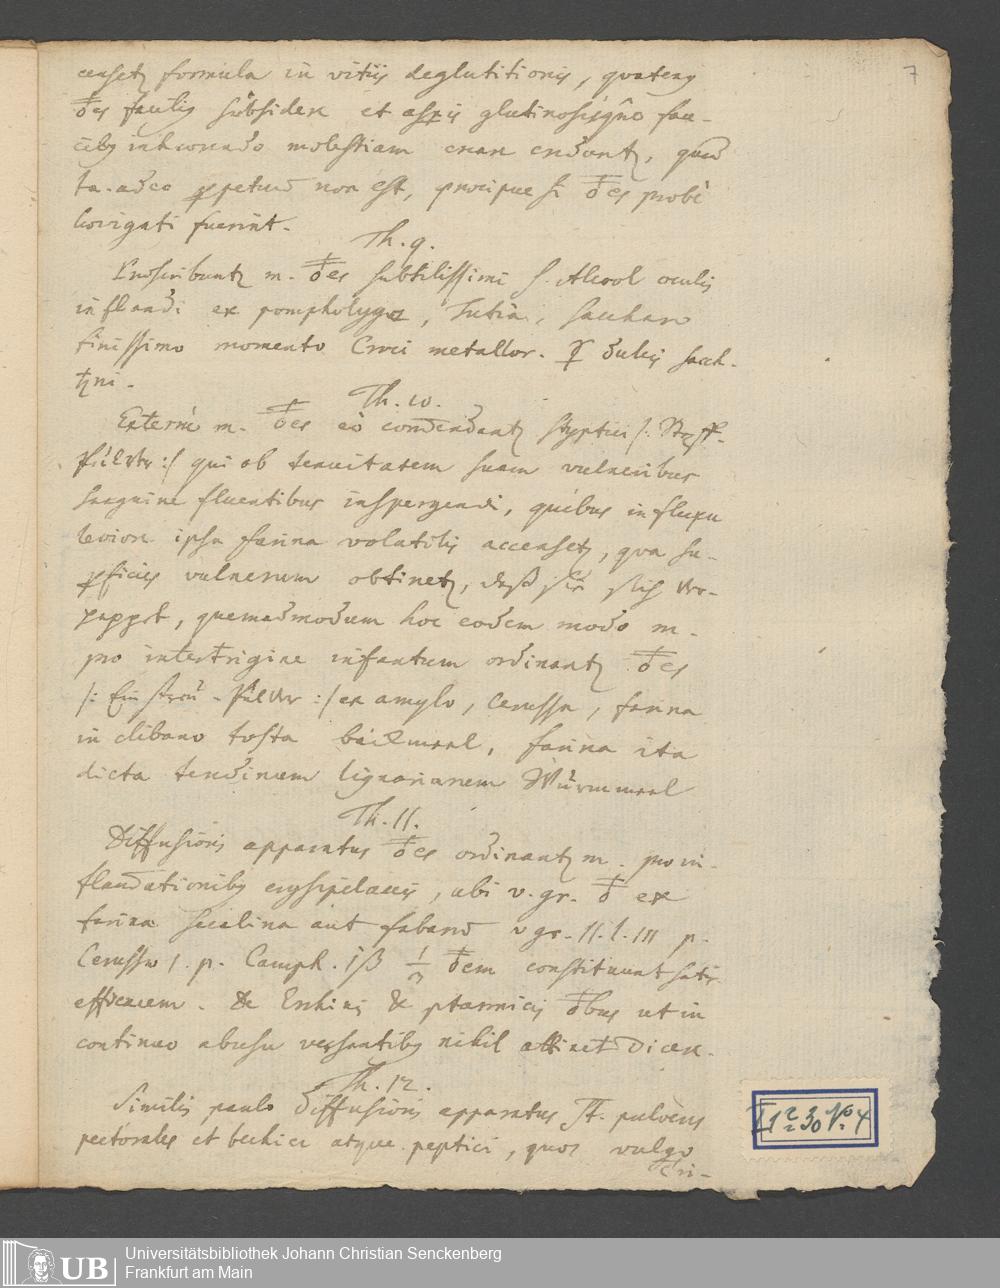 7
censetur formula in vitiis deglutitionis, quatenus
♁es facilis subsidere et asperis glutinosisque fau-
cibus inhærendo molestiam creare creduntur, quod
ta. adeo perpetuum non est, præcipue si ♁es probe
lævigati fuerint.
Th. 9.
Præscribuntur m. ♁es subtilissimi s. Alcool oculis
inflandi ex pompholyge, Tutia, saccharo
finissimo momento Croci metallor. ☿ dulcis sacch.
♄ni.
Th. 10.
Externe m. ♁es eo commendantur styptici
qui ob tenuitatem suam vulneribus
sanguine fluentibus inspergendi, quibus in fluxu
leviore ipsa farina volatilis accensetur, qua su-
perficies vulnerum obtinetur, daß sie sich ver-
pappet, quemadmodum hoc eodem modo m.
pro intertrigine infantum ordinantur ♁es
/: Ein streu-Pulver :/ ex amylo, Cerussa, farina
in clibano tosta backmeel, farina ita
dicta lignariarum Wurmmeel
Th. 11.
Diffusioris apparatus ♁es ordinantur m. pro in-
flammationibus erysipelaceis, ubi v. gr. ♁ ex
farina secalina aut fabarum v gr. II. l. III p.
Cerussæ I. p. Camph. ℈ß ♁em constituunt satis
efficacem. De Errhinis & ptarmicis ♁bus ut in
continuo abusu versantibus nihil attinet dicere.
Th. 12.
Similis paulo diffusioris apparatus st. pulveres
pectorales et bechici atque peptici, quos vulgo
Tri-
I 1 2 30 No. 4
UB
Universitätsbibliothek Johann Christian Senckenberg
Frankfurt am Main